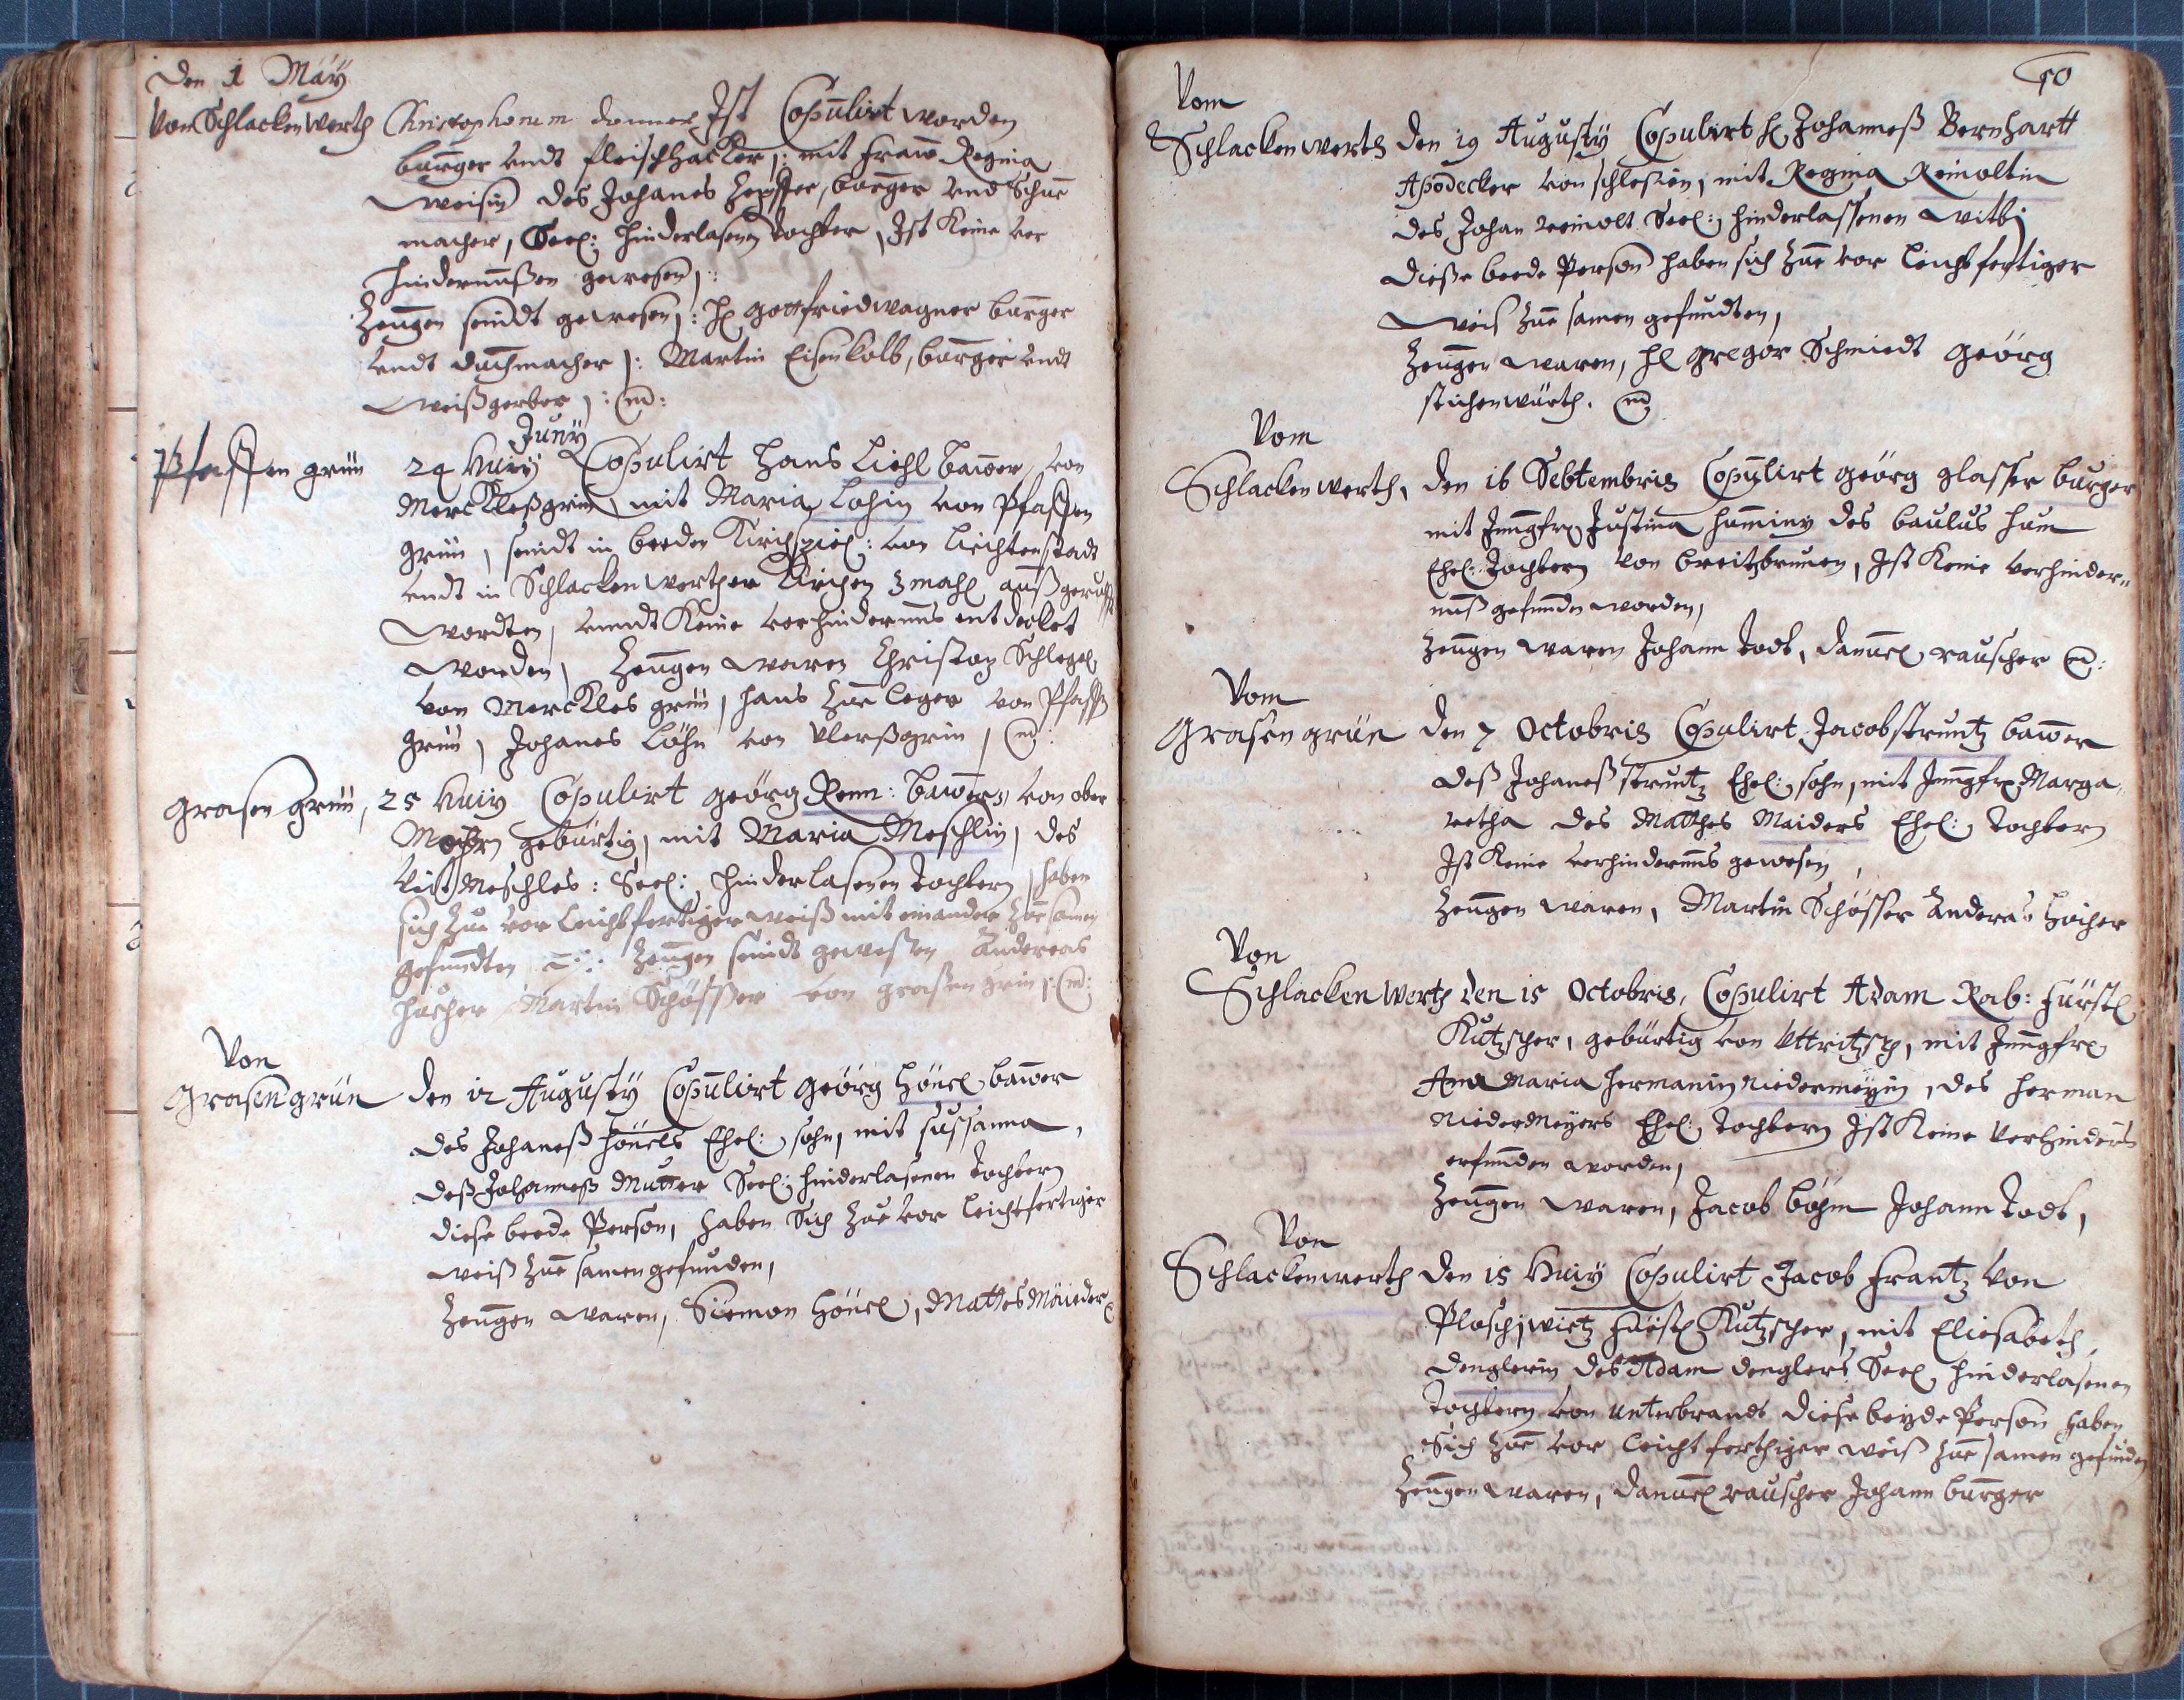 Den 1 Maÿ
Von Schlackenwerth Christophorum donner Ist Copulirt worden
burger undt fleischhacker /: mit Fraw Regina
weisin des Johanes burger und Schue
macher, Seel: hinderlasenen tochter, Ist Keine ver
hindernußen gewesen /:
Zeugen seindt gewesen /: H gottfried wagner burger
undt duchmacher /: Martin Eisenkolb, burger undt
weißgerber /: mp:
Juny
Pfaffen grün 24 Huiy Copulirt Hans Liehl bawer, von
Merckleßgrin mit Maria Lohin von Pfaffen
grün, seindt in beeden Kirchspiel: von Liechtenstadt
undt in Schlackenwerther Kirchen 3 mahl außgerufft
wordten, unndt Keine verhindernus entdecket
worden, Zeugen waren Christoph Schlegel
von Merckles grün, hans Zue leger von Pfaffen
grün, Johanes Löhn von Ulerßgrin, mp:
Grasen grün, 25 Huiy Copulirt Geörg Renn: bawers, von ober
gebürtig, mit Maria Meschlin, des
Veit Meschles: Seel: hinderlasenen tochtern, haben
sich Zue vor leichtfertiger weiß mit einander Zue samen
gefundten Zeugen seindt gewesen Andereas
hacher Martin Schösser von grasen grin /: mp:
Von
Grasengrün den 12 Augusty Copulirt Geörg Hönel bawer
des Johaneß hönels Ehel: sohn, mit sussanna,
deß Johanneß Mutter Seel: hinderlasenen tochtern
diese beede Person, haben Sich Zue vor leichtfertiger
weiß Zue samen gefunden,
Zeugen waren, Siemon Hönel, Mattes Maieder
50
Vom
Schlackenwerth den 19 Augusty Copulirt H Johanneß Bernhartt
Apodecker von schlesien, mit Regina Reinoltin
des Johan reinolt Seel: hinderlassenen witbi
Dieße beede Person haben sich Zue vor leichtfertiger
weiß Zue samen gefundten,
Zeugen waren, H Gregor Schmiedt Geörg
stichenwürth. mp
Vom
Schlackenwerth, den 16 Sebtembris Copulirt geörg glasser burger
mit Jungfr Justina hamminy des baulus ham
Ehel: Tochtern von breitzbrunen, Ist Keine verhinder„
nuß gefunden worden,
Zeugen waren Johann todt, danuel rauscher mp:
Vom
Grasengrün den 7 Octobris Copulirt Jacob struntz bawer
deß Johaneß struntz Ehel: sohn, mit Jungfr Marga
retha des Matthes Maiders Ehel: tochtern
Ist Keine verhindernus gewesen,
Zeugen waren, Martin Schösser Anderas Hacher
Von
Schlackenwerth den 15 Octobris, Copulirt Adam Rab: Fürstl
Kutzscher, gebürtig von Uttritzsch, mit Jungfr
Ana Maria hermanin niedermeyin, des herman
niedermeyers Ehel: tochtern Ist Keine verhindernus
erfunden worden,
Zeugen waren, Jacob böhm Johann todt,
Von
Schlackenwerth den 15 Huiy Copulirt Jacob Frantz von
Ploschwitz Fürstl Kutzscher, mit Eliesabeth,
denglerin des Adam denglers Seel hinderlasenen
tochtern von unterbrandt diese beyde Person haben
Sich Zue vor leichtferthiger weiß Zue samen gefunden
Zeugen waren, danuel rauscher Johann burger